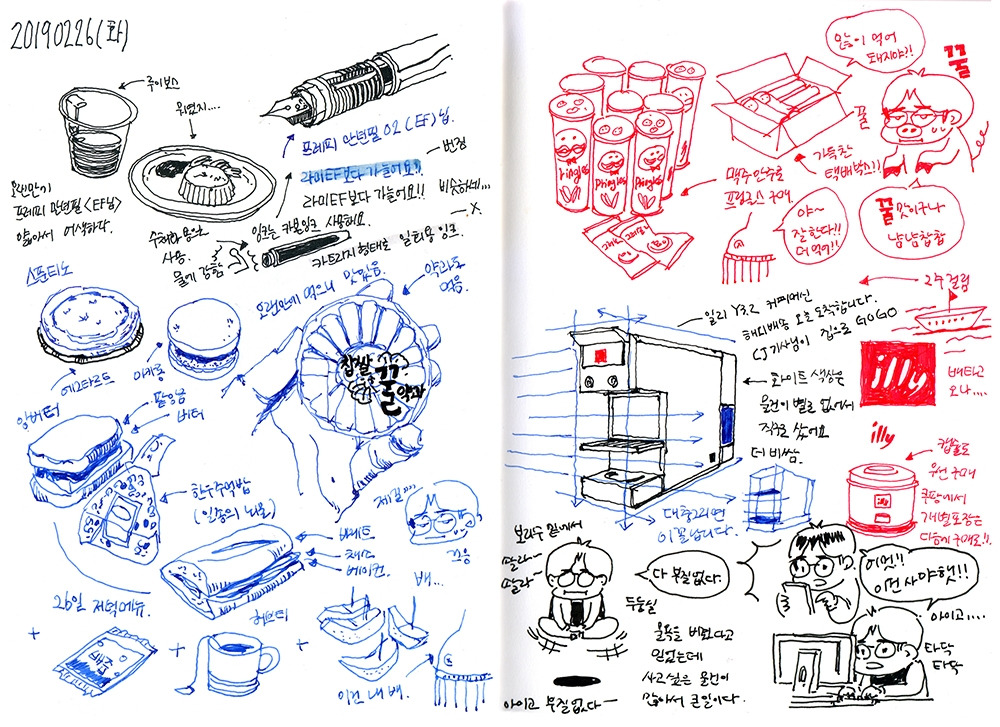 20190226(화)
루이보스
뭐였지....
오랜만이
프레피 만년필 <EF>닙
얇아서 어색하다.
수채화 용으로
사용.
물기 강함
프레피 만년필 02 <EF>닙.
라미EF보다 가늘어요!!
번짐
라미EF보다 가늘어요!!
비슷하네...
잉크는 카본잉크 사용해요.
X
카트리지 형태로 일회용 잉크.
스폰티노
에그타르트
마카롱
오랜만에 먹으니 맛있음
약과도
먹음.
찹쌀
꿀
약과
앙버터
팥앙금
버터
한우주먹밥
(일종의 뇌물)
제길...
26일 저녁메뉴.
바게트
치즈
베이컨
배...
이건 내 배.
+
+
+
오늘이 먹어
돼지야?!
꿀
꿀
Pringles
Pringles
Pringles
맥주안주로
프링글스 구매.
가득찬
택배박스!!
야~
잘한다!!
더먹어!!
꿀맛이구나
냠냠찹찹
2주 걸림
일리 Y3.2 커피머신
해외배송 오늘 도착합니다.
CJ기사님이 집으로 GOGO
화이트 색상은
물건이 별로 없어서
직구로 샀어요
더 비쌈.
illy
배타고
오나....
illy
illy
캡슐도
우선 구매
쿠팡에서
개별포장은
다음에 구매로!!
대충그리면
이꼴납니다.
보리수 밑에서
딸랑~
딸랑~
다 부질없다.
두둥실
물욕을 버렸다고
믿었는데
사고싶은 물건이
많아서 큰일이다.
아이고 부질없다
어멋!!
이건 사야햇!!
아이고....
타닥
타닥